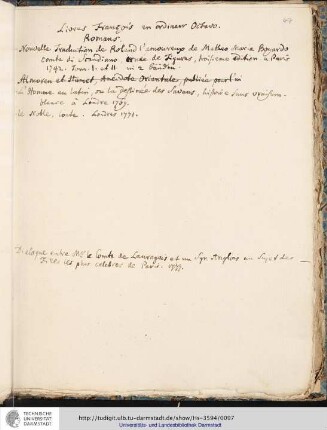 Livres François in ordineur Octavo.
Romans.
Nouvelle Traduction de Roland l'amoureux de Matheo Maria Boyardo
comte di Scandiano, ornée de Figures, troisieme édition à Paris
1742. Tom. I. et II in 2 Bänden.
Almoran et Hamet, Anecdote Orientale, publiée pour l'in
L'Homme au latin, ou la destinée des Savans, histoire sans vraisem-
blance à Londre 1769.
le Noble, conte. Londres 1771.
Dialogue entre Mr. le Comte de Lauraguais et un Syn Anglois au Sujet des
Filles les plus celebres de Paris. 1777.
TECHNISCHE
UNIVERSITÄT
DARMSTADT
http://tudigit.ulb.tu-darmstadt.de/show/Hs-3594/0097
Universitäts- und Landesbibliothek Darmstadt